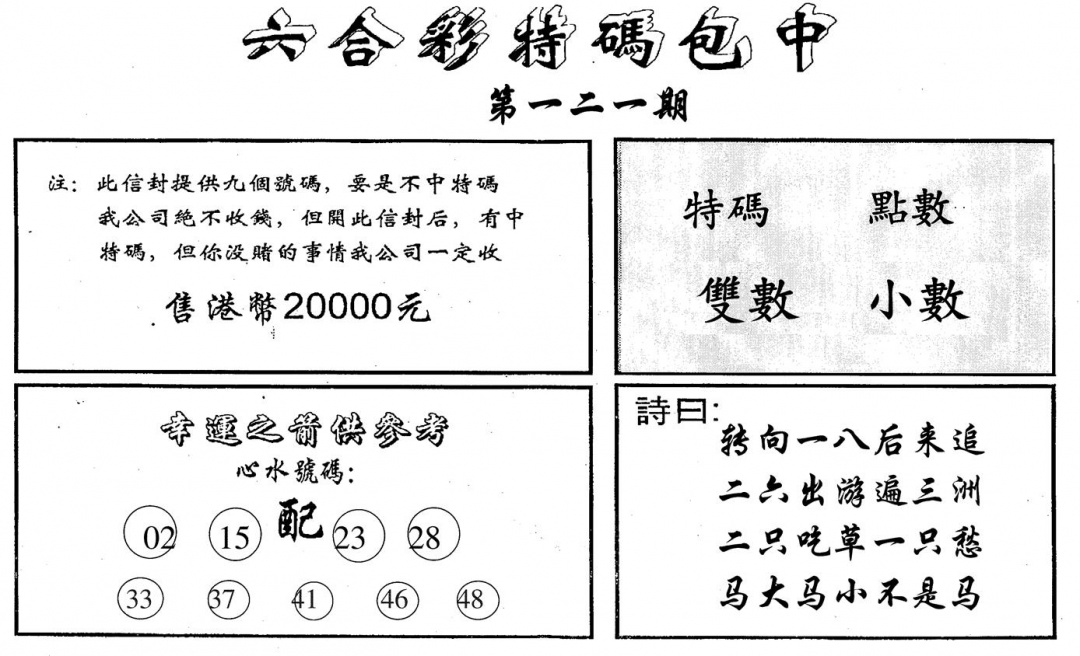 六合彩特碼包中
第一二一期
注：此信封提供九個號碼，要是不中特碼
我公司絕不收錢，但開此信封后，有中
特碼，但你没賭的事情我公司一定收
售港幣20000元
特碼 點數
雙數 小數
幸運之箭供參考
心水號碼：
配
02 15 23 28
33 37 41 46 48
詩曰：
转向一八后来追
二六出游遍三洲
二只吃草一只愁
马大马小不是马